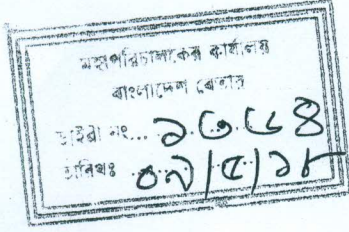 মহাপরিচালকের কার্যালয়
বাংলাদেশ বেতার
ডাইরী নং... ১৩৬৪
তারিখঃ ০৯/৫/১৮